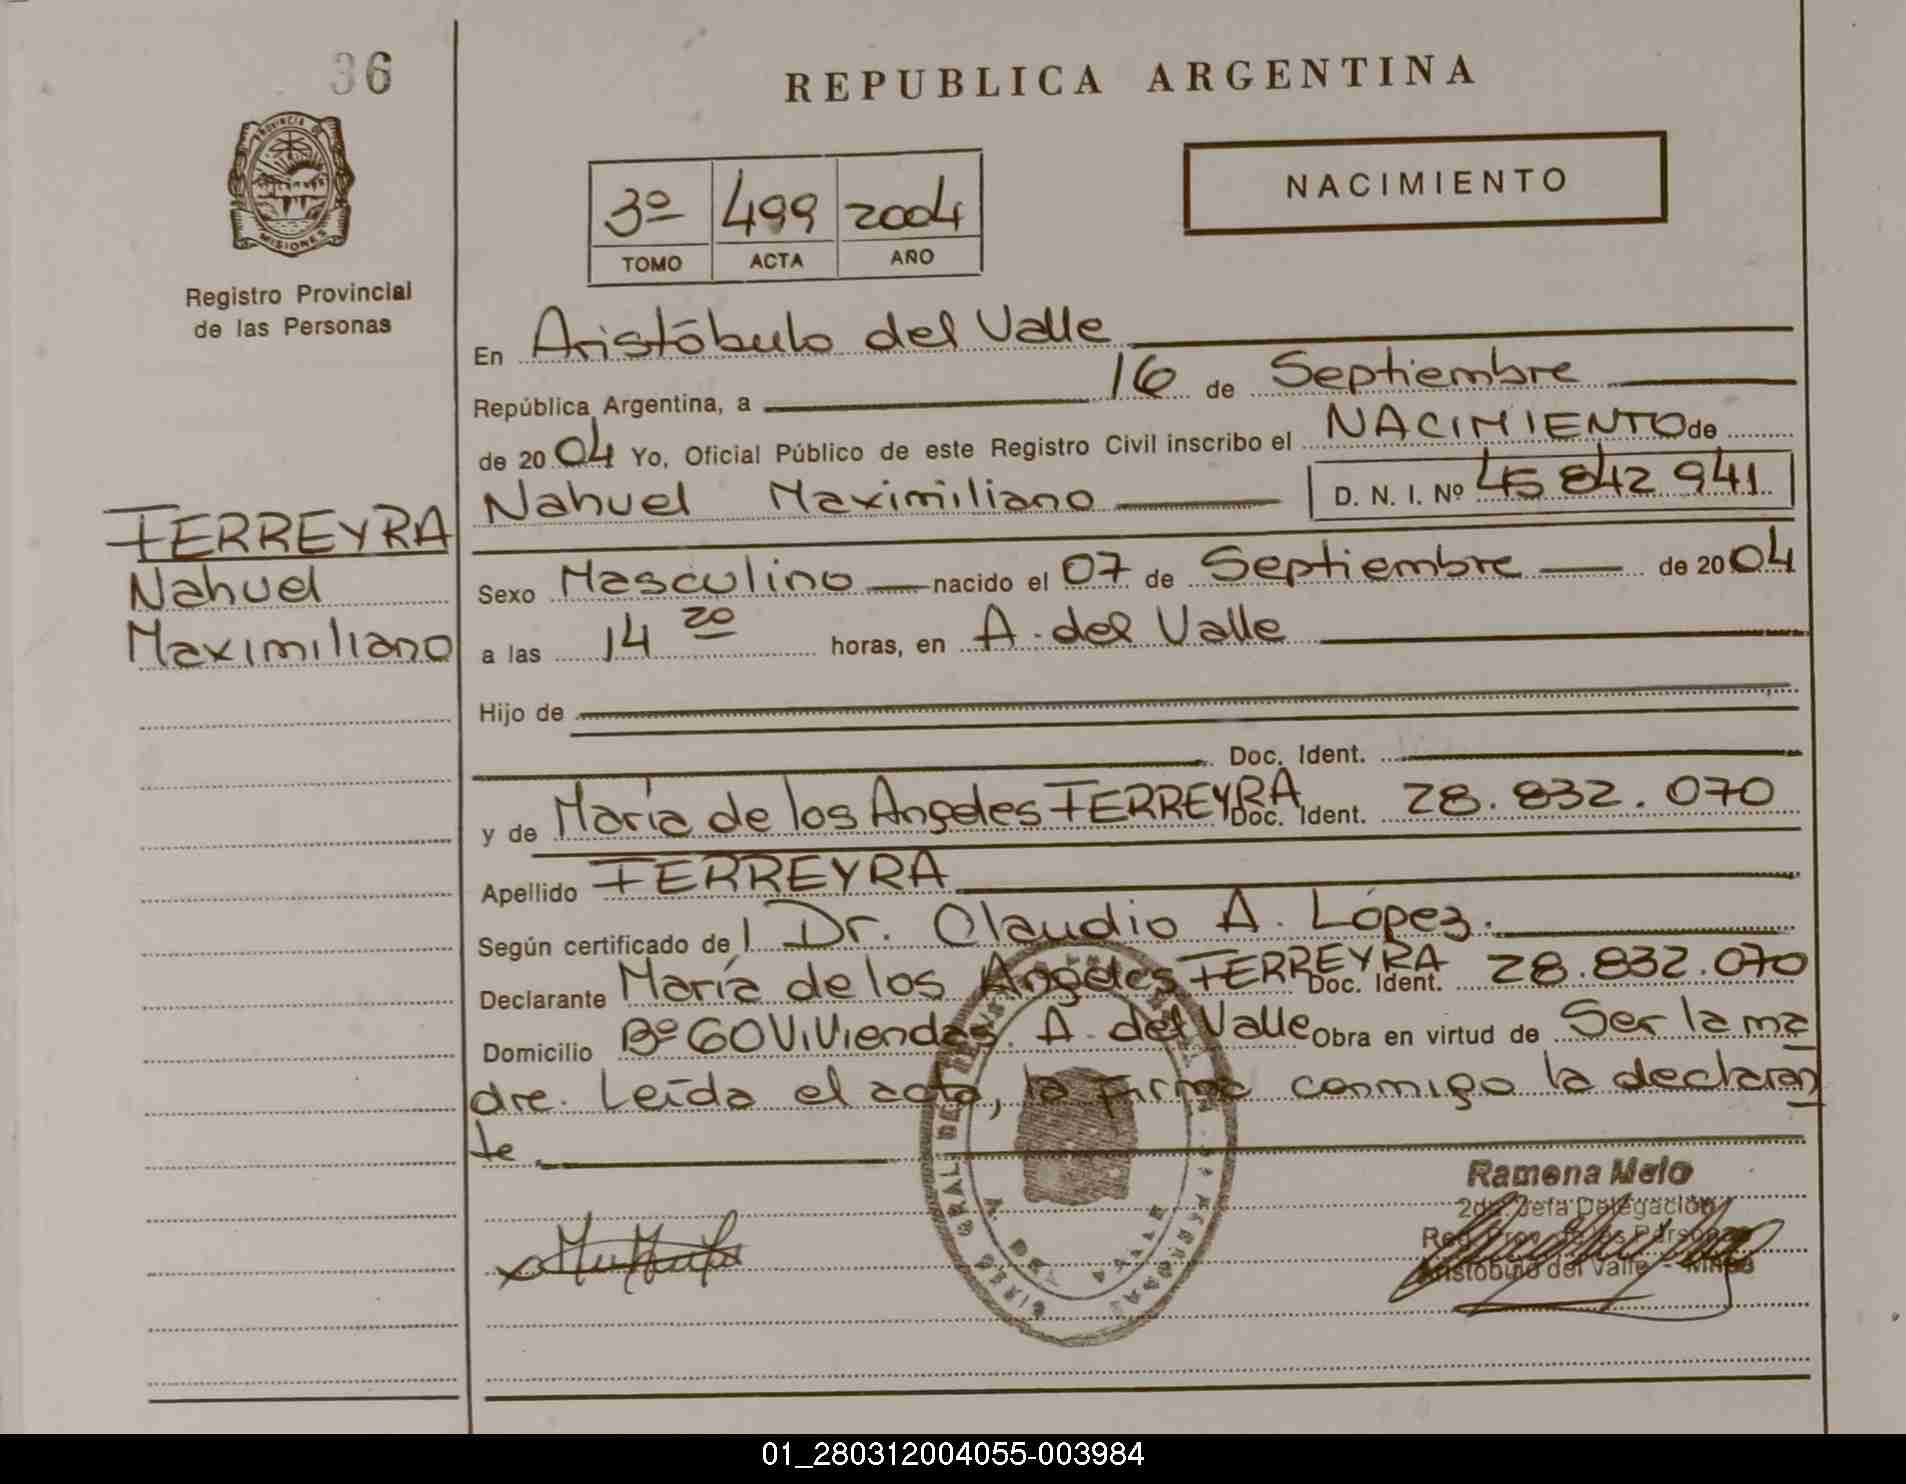 36
REPUBLICA ARGENTINA
PROVINCIA DE
MISIONES
NACIMIENTO
3º 499 2004
TOMO ACTA AÑO
Registro Provincial
de las Personas
En Aristóbulo del Valle
República Argentina, a 16 de Septiembre
de 2004 Yo, Oficial Público de este Registro Civil inscribo el NACIMIENTO de
Nahuel Maximiliano D. N. I. Nº 45 842 941
FERREYRA
Nahuel
Maximiliano
Sexo Masculino nacido el 07 de Septiembre de 2004
a las 14 20 horas, en A. del Valle
Hijo de
Doc. Ident.
y de María de los Angeles FERREYRA Doc. Ident. 28.832.070
Apellido FERREYRA
Según certificado del Dr. Claudio A. López.
Declarante María de los Angeles FERREYRA Doc. Ident. 28.832.070
Domicilio Bº 60 Viviendas. A. del Valle Obra en virtud de Ser la ma
dre. Leída el acta, la firma conmigo la declaran
te
Ramona Melo
2da. Jefa Delegación
Reg. Prov. de las Personas
Aristóbulo del Valle - Mnes
A. DEL VALLE
01_280312004055-003984